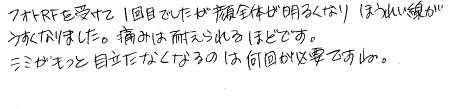 フォトRFを受けて1回目でしたが顔全体が明るくなりほうれい線が
うすくなりました。痛みは耐えられるほどです。
シミがもっと目立たなくなるのは何回が必要ですね。